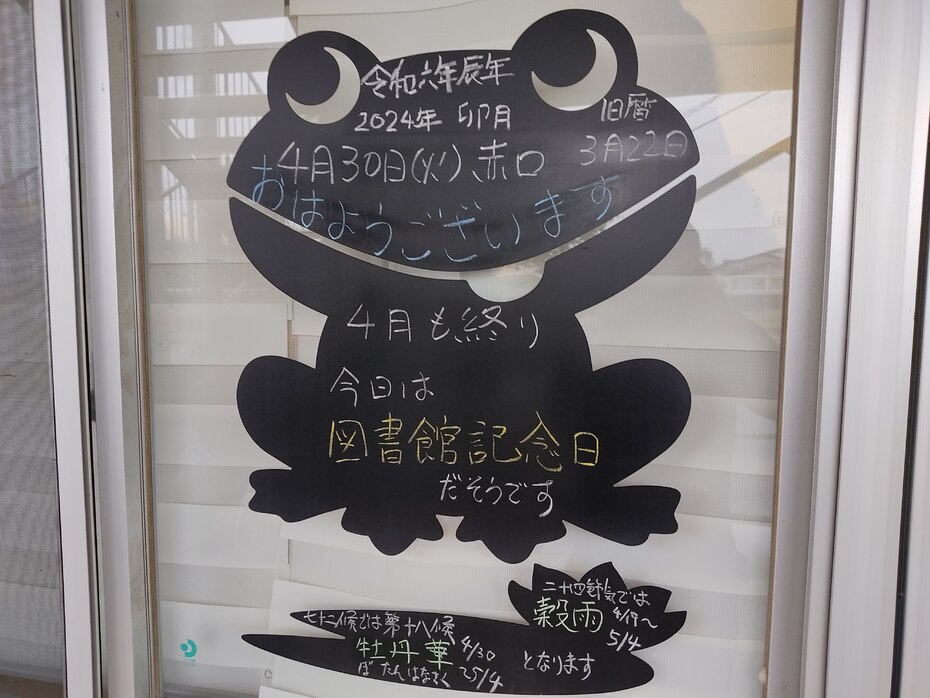 令和六年辰年
2024年 卯月
旧暦
3月22日
4月30日(火)赤口
おはようございます
4月も終り
今日は
図書館記念日
だそうです
二十四節気では
穀雨 4/19〜
5/4
七十二候では第十八候
牡丹華 4/30
ぼたんはなさく 5/4
となります